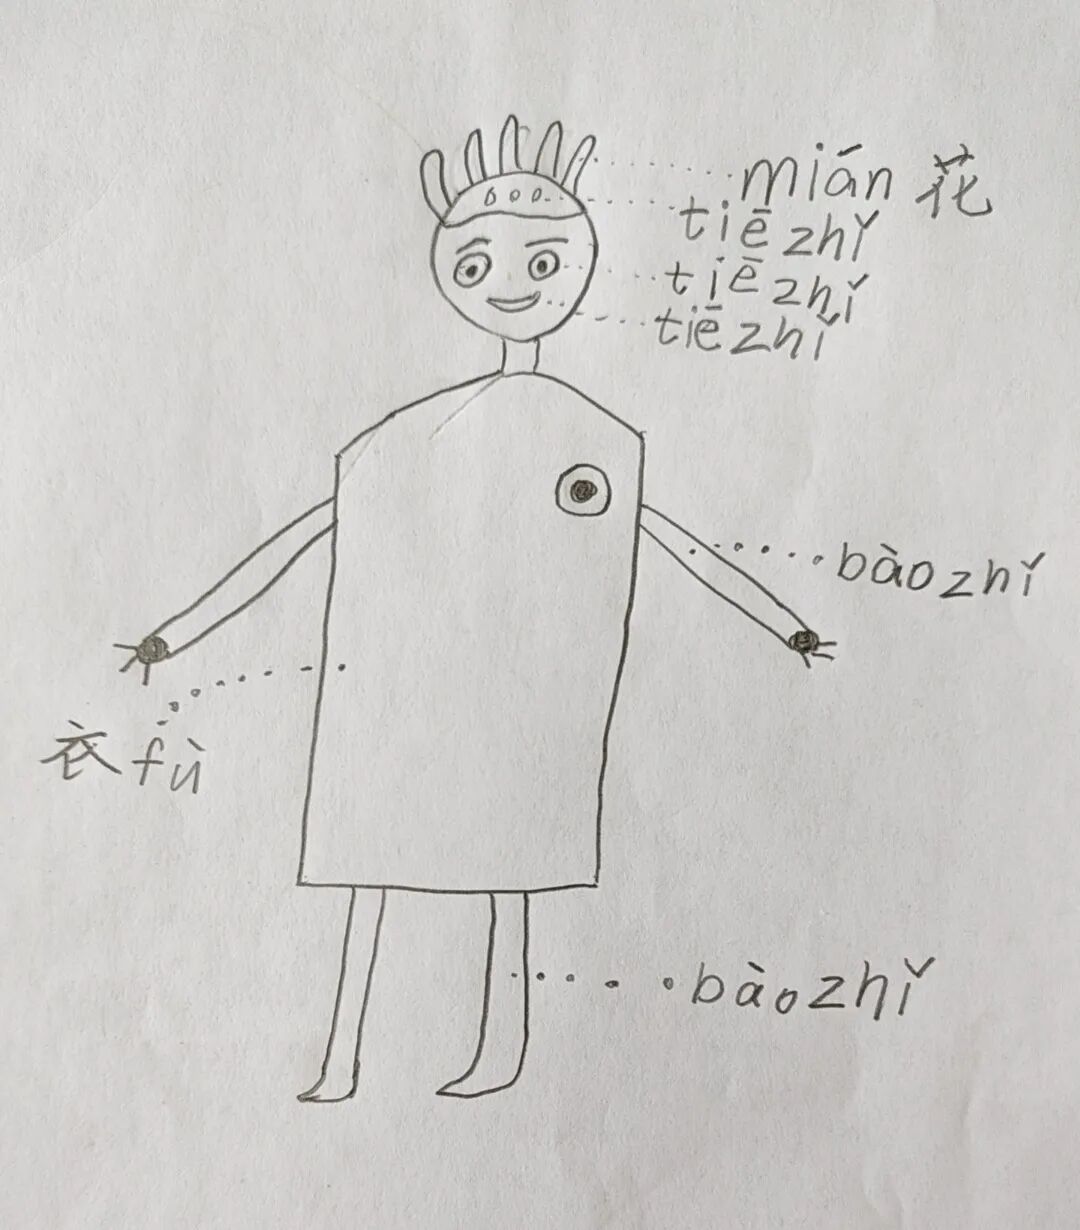 mián 花
tiē zhǐ
tiē zhǐ
tiē zhǐ
bào zhǐ
衣 fù
bào zhǐ